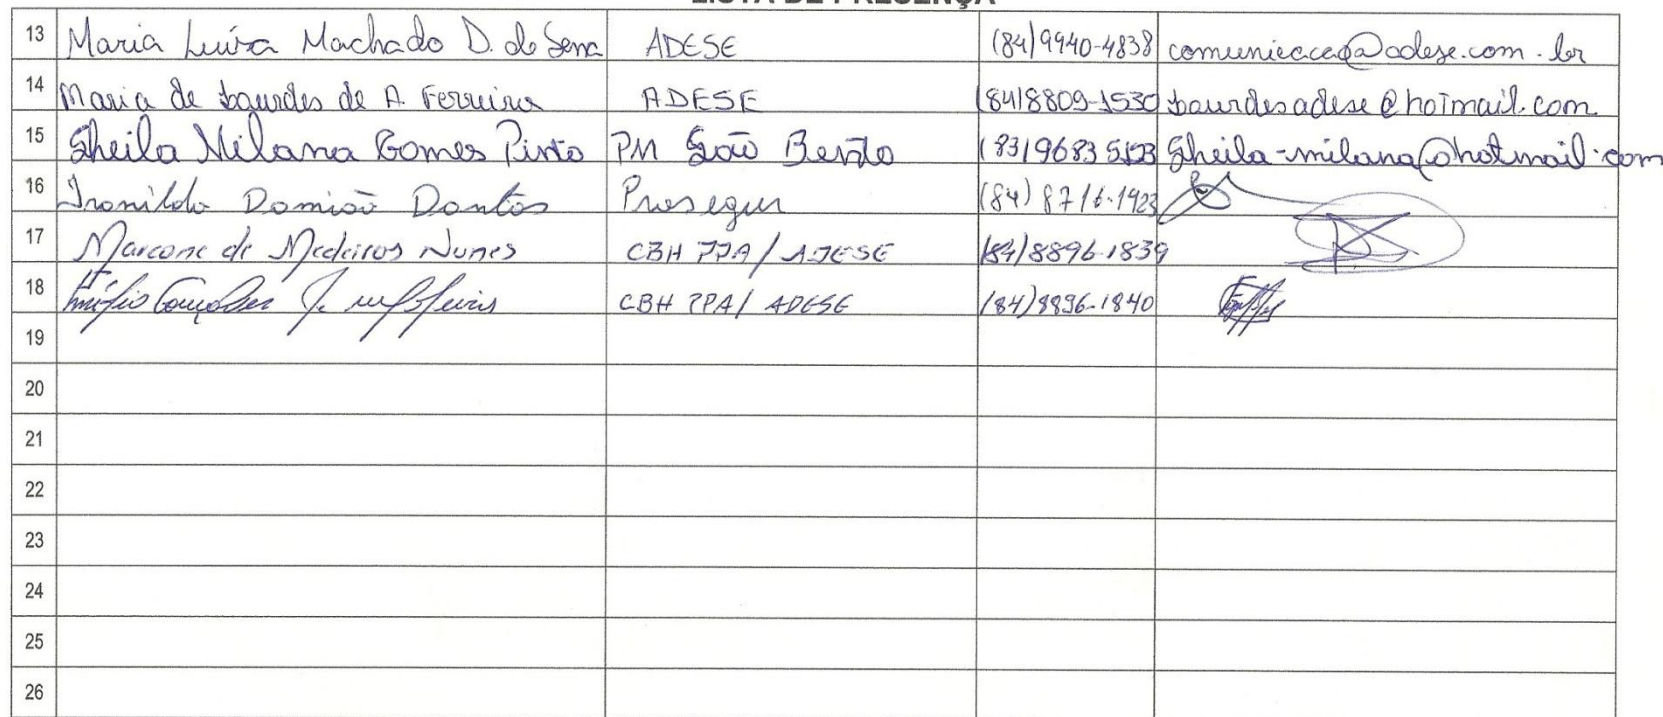 LISTA DE PRESENÇA
13 Maria Luiza Machado D. de Sena ADESE (84)9940-4838 comunicacao@adese.com.br
14 Maria de Lourdes de A Ferreira ADESE (84)8809-1530 lourdesadese@hotmail.com
15 Sheila Milana Gomes Pinto PM São Bento (83)9683 5123 Sheila-milana@hotmail.com
16 Ironildo Damião Dantas Prosegur (84) 8716-1923
17 Marcone de Medeiros Nunes CBH PPA/ADESE (84)8896-1839
18 Emídio Gonçalves CBH PPA/ ADESE (84)8896-1840
19
20
21
22
23
24
25
26